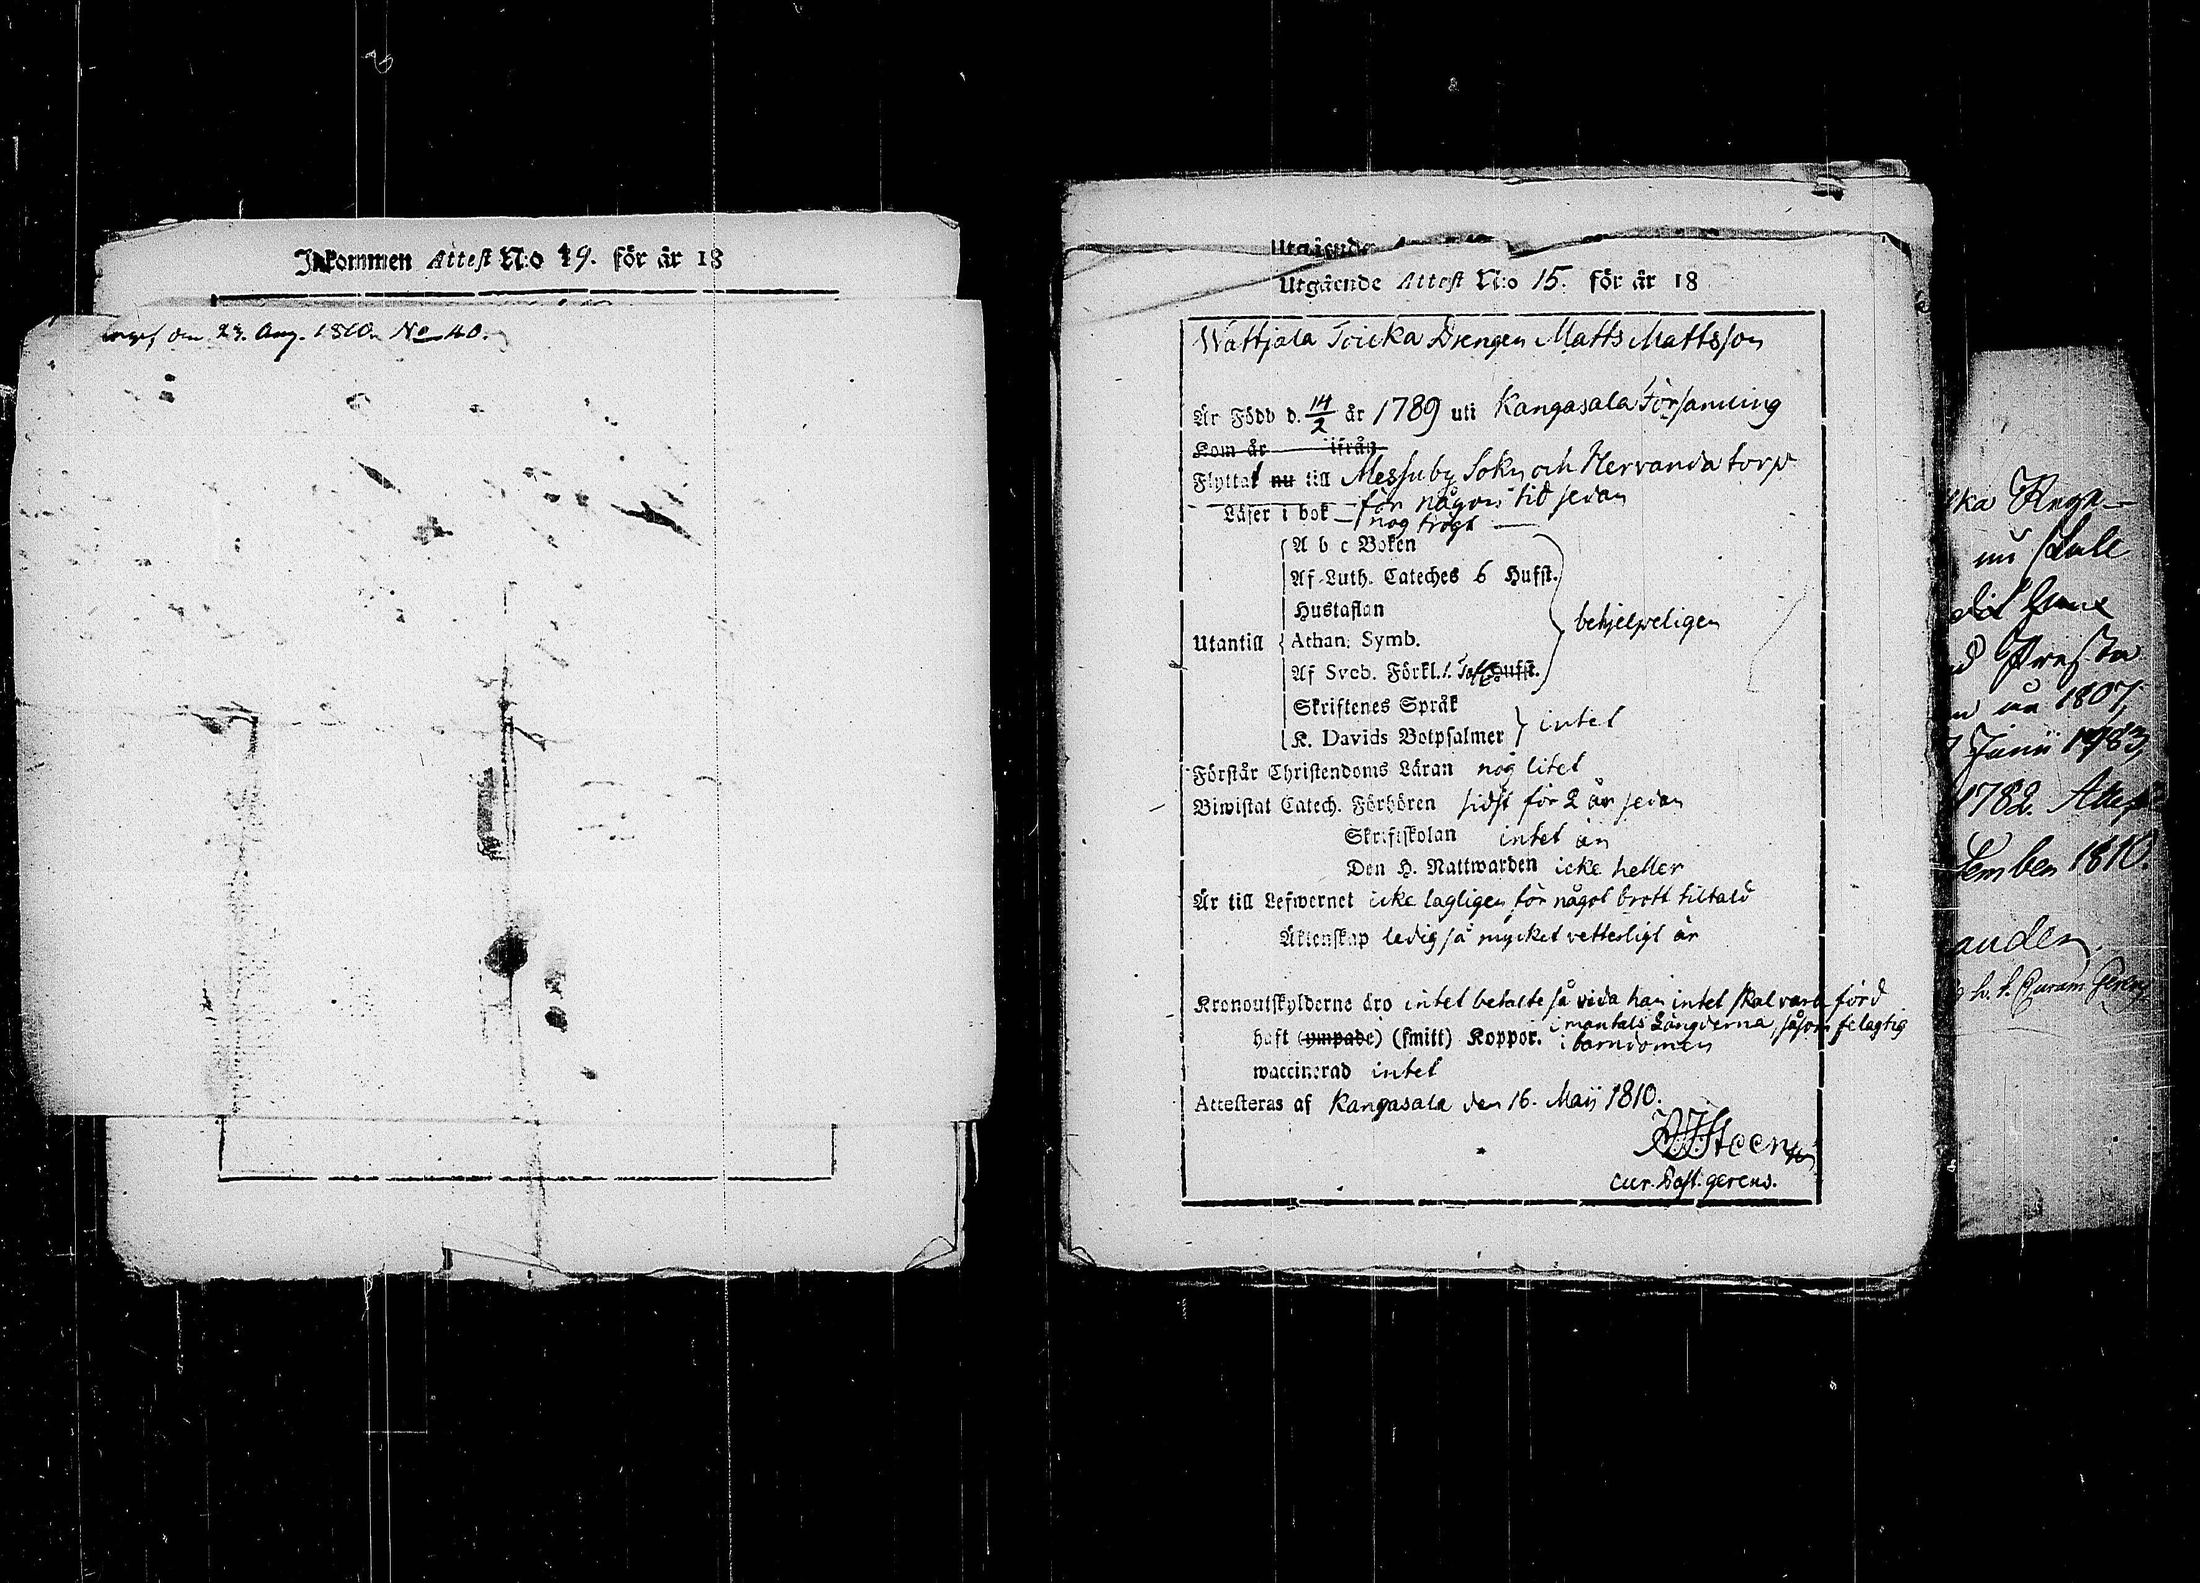 Inkommen Attest N:o 19. för år 18
den 23. Aug. 1810. No 40.
Utgående
Utgående Attest N:o 15. för år 18
Wattjala Toicka Drengen Matts Mattsson
Är Född d. 14/2 år 1789 uti Kangasala Församling
Kom år ifrån
Flyttat nu till Messuby Sokn och Hervanda torp
för någon tid sedan
Läser i bok nog trögt
A b c Boken
Af Luth. Cateches 6 Hufst.
Hustaflan
behjelpeligen
Utantill Athan. Symb.
Af Sveb. Förkl. Hufst.
Skriftenes Språk
K. Davids Botpsalmer intet
Förstår Christendoms Läran nog litet
Biwistat Catech. Förhören sidst för 2 år sedan
Skriftskolan intet än
Den H. Nattwarden icke heller
Är till Lefwernet icke lagligen för något brott tiltald
Äktenskap ledig så mycket vetterligt är
Kronoutskylderne äro intet betalte så vida han intet skal vara förd
i mantals Längderna, såsom felagtig
haft (ympade) (smitt) Koppor. i barndomen
waccinerad intet
Attesteras af Kangasala den 16. Maij 1810.
cur. Past. gerens.
ka
nu
1807,
Junii 1783,
1782. Attest
tember 1810.
anden.